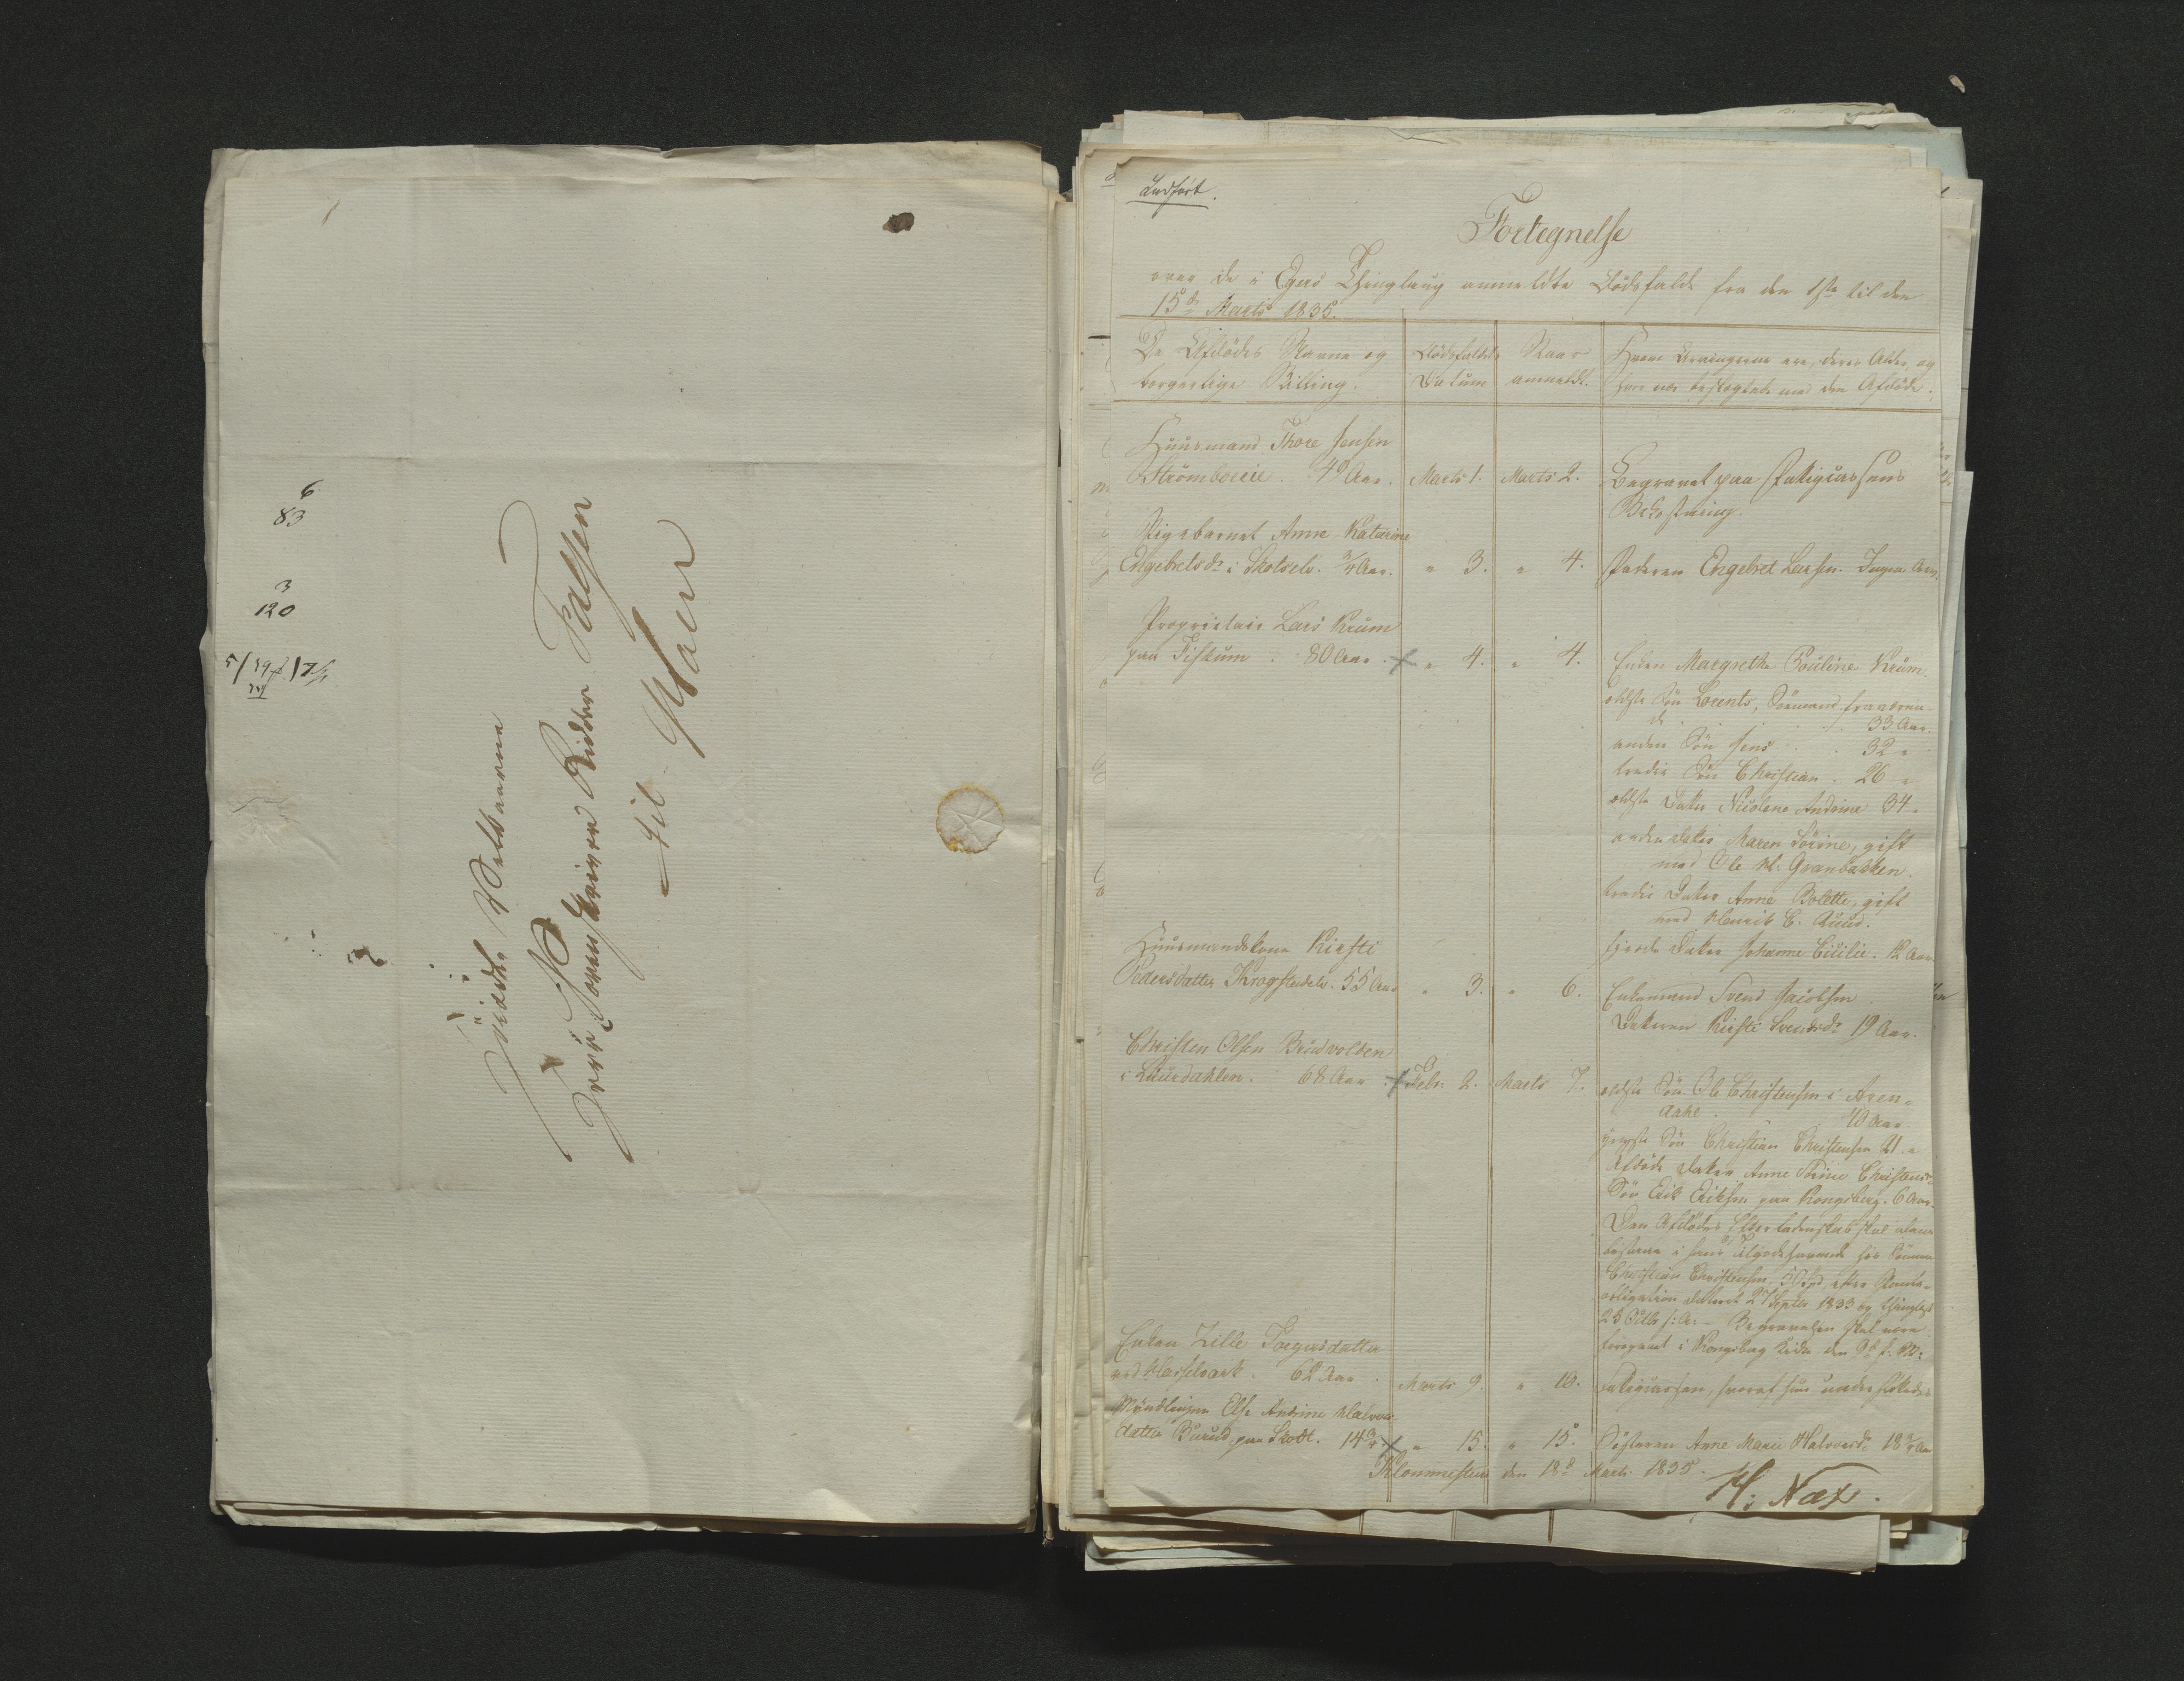 6
83
3
120
Höiædle Velbaarne
Herr Sorenskriver Ridder Falsen
til
Indført.
Fortegnelse
over de i Egers Thinglaug anmeldte Dödsfald fra den 1ste til den
15de Marts 1835.
De Afdödes Navne og
borgerlige Stilling.
Dödsfaldets
Datum
Naar
anmeldt.
Hvem Arvingerne ere, deres Alder og
hvor nær beslægtede med den Afdöde.
Huusmand Thore Jensen
Strömboeie. 49 Aar.
Marts 1.
Marts 2.
Begravet paa Fattigcassens
Bekostning.
Pigebarnet Anne Katarine
Engebretsdr i Skotselv. 3/4 Aar.
" 3.
" 4.
Faderen Engebret Larsen. Ingen Arv.
Proprietair Lars Krum
paa Fiskum. 80 Aar.
" 4.
" 4.
Enken Margrethe Pouline Krum.
ældste Sön Lorents, Sömand, fraværen-
de 33 Aar.
anden Sön Jens 32 "
tredie Sön Christian. 26 "
ældste Datter Nicoline Andrine 34.
anden Datter Maren Sörine, gift
med Ole N. Granbakken.
tredie Datter Anne Bolette, gift
med Henrik E. Ruud.
fjerde Datter Johanne Cicilie. 12 Aar.
Huusmandskone Kirsti
Pedersdatter Krogstadelv. 55 Aar
" 3.
" 6.
Enkemand Svend Jacobsen
Datteren Kirsti Svendsdr 19 Aar.
Christen Olsen Brudvolden
i Luurdahlen. 68 Aar
Febr. 2.
Marts 7.
ældste Sön Ole Christensen i
40 Aar
yngste Sön Christian Christensen 21 "
Afdöde Datter Anne Christensdr
Sön Erik Eriksen paa Kongsberg. 6 Aar.
Den Afdödes Efterladenskab skal alene
bestaae i hans Tilgodehavende hos Sönnen
Christian Christensen, 50 Spd, efter Pante-
obligation dateret 27 Septbr 1833 og thinglæst
25 Octbr s: A: - Begravelsen skal være
foregaaet i Kongsberg Kirke den
Enken Torgersdatter
ved 62 Aar
Marts 9.
" 10.
Fattigcassen, hvoraf hun understöttedes
Myndlingen Else Andrine Halvors-
datter Buruld paa Skott. 14 3/4
" 15.
" 15.
Søsteren Anne Marie Halvorsdr 18 3/4 Aar
den 18de Marts 1835.
H. Næss.